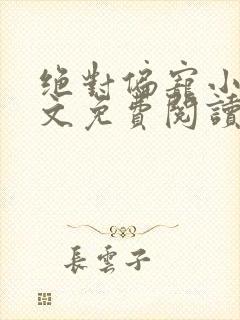 絕對偏寵小
文免費閱讀
長雲子